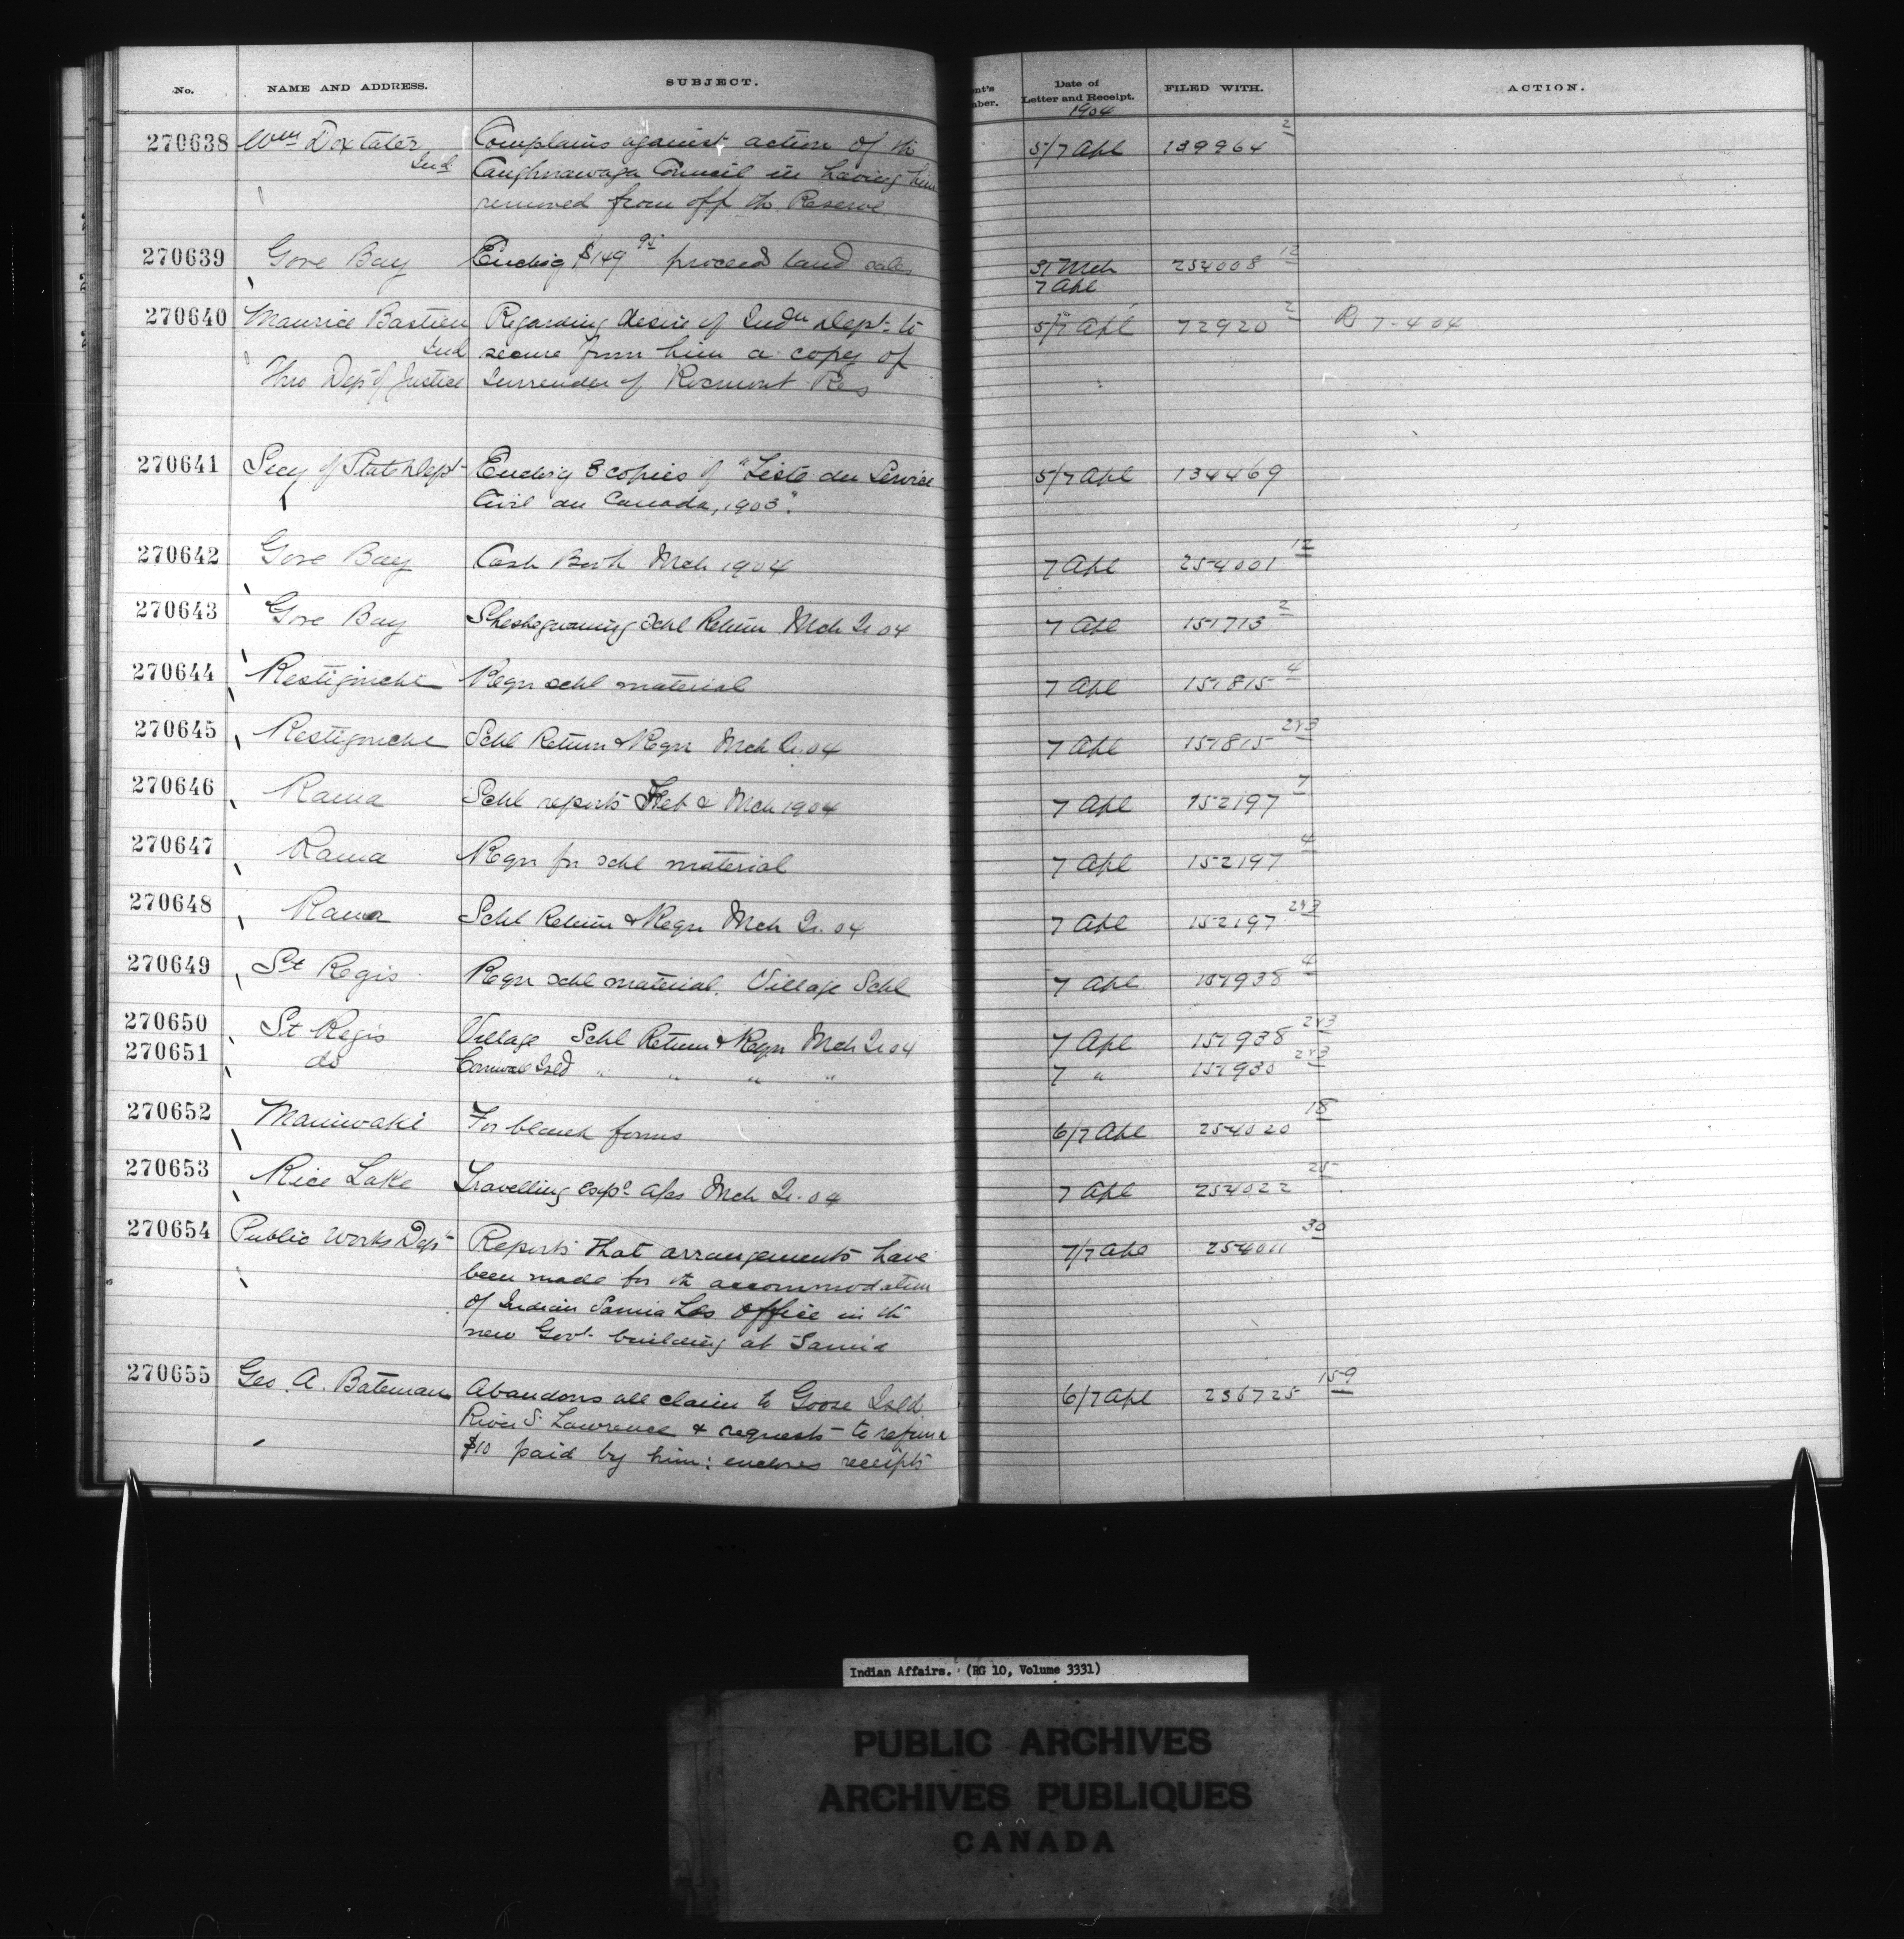 No. NAME AND ADDRESS. SUBJECT. nt's Date of FILED WITH. ACTION.
ber. Letter and Receipt.
1904
270638 Wm Doxtater Complains against action of th 5/7 Apl 139964 2
Ind Caughnawaga Council in having him
removed from off th Reserve
270639 Gore Bay Enclosg $149 95 proceeds land sales 31 Mch 254008 12
7 Apl
270640 Maurice Bastien Regarding desire of Indn Dept to 5/7 Apl 72920 2 7-4 04
Ind secure from him a copy of
Thro Dept of Justice Surrender of Rocmont Res
270641 Secy of State Dept Enclosg 3 copies of "Liste du Service 5/7 Apl 134469
Civil du Canada, 1903".
270642 Gore Bay Cash Book Mch 1904 7 Apl 254001 12
270643 Gore Bay Sheshegwaning Schl Return Mch Qr 04 7 Apl 151713 2
270644 Restigouche Reqn schl material 7 Apl 151815 4
270645 Restigouche Schl Return & Reqn Mch Qr. 04 7 Apl 151815 2&3
270646 Rama Schl reports Feb & Mch 1904 7 Apl 152197 7
270647 Rama Reqn for schl material 7 Apl 152197 4
270648 Rama Schl Return & Reqn Mch Qr. 04 7 Apl 152197 2&3
270649 St Regis Reqn schl material. Village Schl 7 Apl 151938 4
270650 St Regis Village Schl Return & Reqn Mch Qr 04 7 Apl 151938 2&3
270651 do Cornwall Isld " " " " 7 " 151930 2&3
270652 Maniwaki For blank forms 6/7 Apl 254020 18
270653 Rice Lake Travelling exps a/cs Mch Qr. 04 7 Apl 254022 25
270654 Public Works Dept Reports that arrangements have 7/7 Apl 254011 30
been made for th accommodation
of Indian Sarnia office in th
new Govt building at Sarnia
270655 Geo. A. Bateman Abandons all claim to Goose Isld 6/7 Apl 236725 159
River St Lawrence & requests to refund
$10 paid by him: encloses receipts
Indian Affairs. (RG 10, Volume 3331)
PUBLIC ARCHIVES
ARCHIVES PUBLIQUES
CANADA